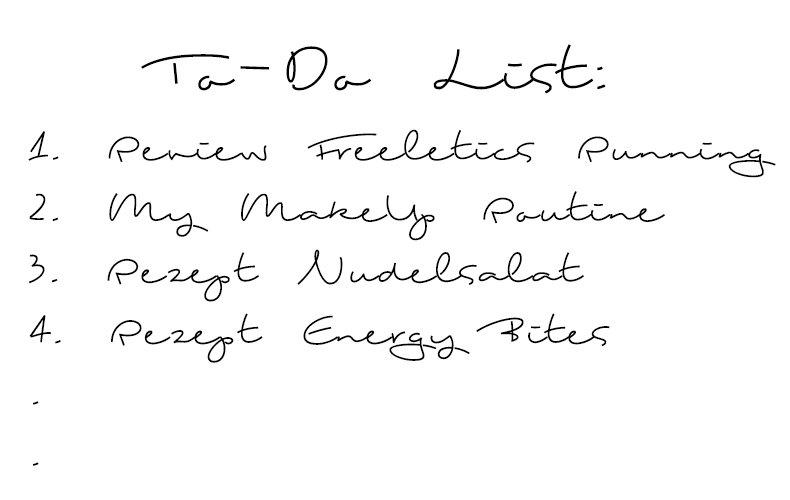 To-Do List:
1. Review Freeletics Running
2. My MakeUp Routine
3. Rezept Nudelsalat
4. Rezept Energy Bites
.
.